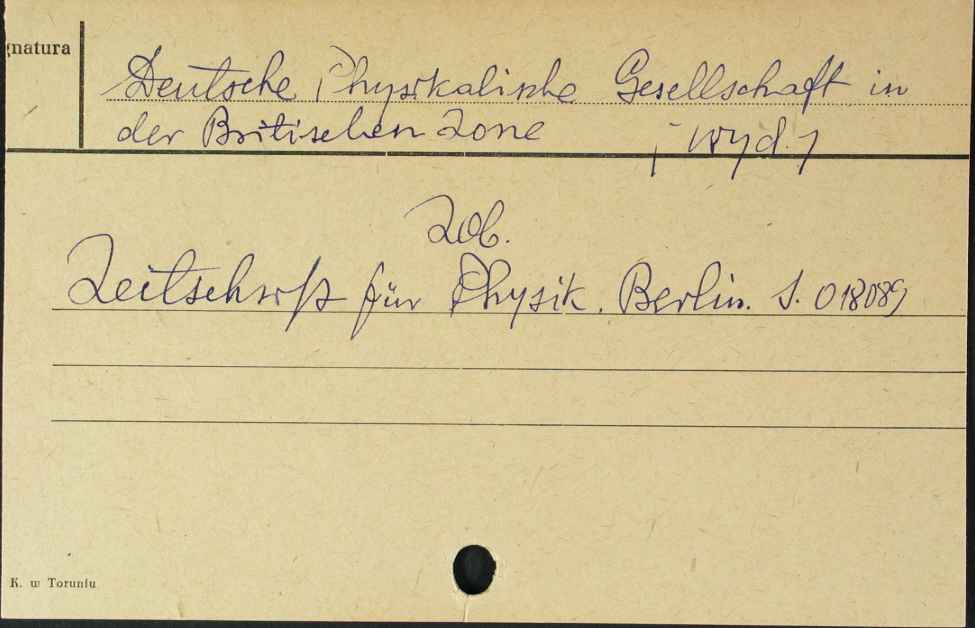 gnatura
Deutsche Physikalische Gesellschaft in
der Britischen Zone [wyd.]
Zob.
Zeitschrift für Physik. Berlin. S. 018089
K. w Toruniu